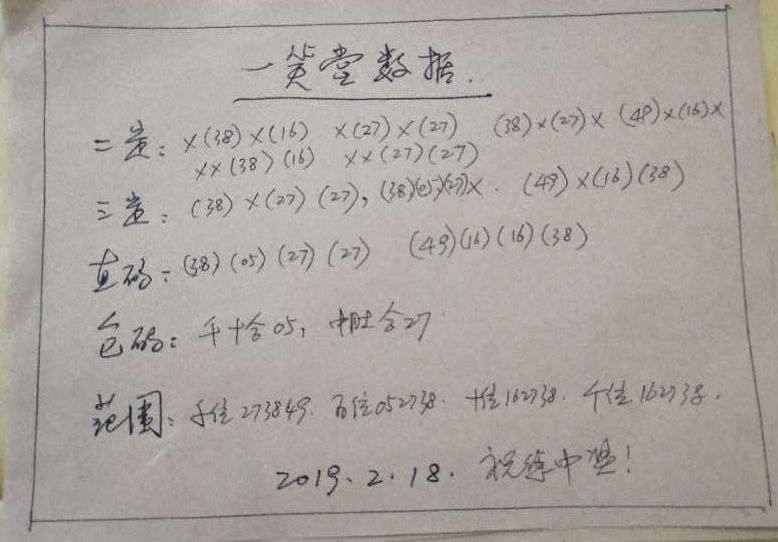 一笑堂数据.
二定: ×(38)×(16) ×(27)×(27) (38)×(27)× (49)×(16)×
××(38)(16) ××(27)(27)
三定: (38)×(27)(27), (38)(05)(27)×. (49)×(16)(38)
直码: (38)(05)(27)(27) (49)(16)(16)(38)
包码: 千十合05, 中肚合27.
范围: 千位273849. 百位052738. 十位162738. 个位162738.
2019.2.18. 祝您中奖!